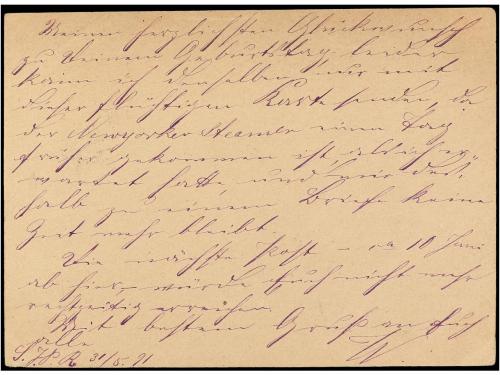 Meinen herzlichsten Glückwunsch
zu Deinem Geburtstag, leider
kann ich denselben nur mit
dieser flüchtigen Karte senden, da
der Newyorker Steamer einen Tag
früher gekommen ist, als ich er-
wartet hatte und mir des-
halb zu einem Briefe keine
Zeit mehr bleibt.
Die nächste Post – ca 10 Juni
ab hier, würde Euch nicht mehr
rechtzeitig erreichen.
Mit bestem Gruß an Euch
alle
31/5. 91